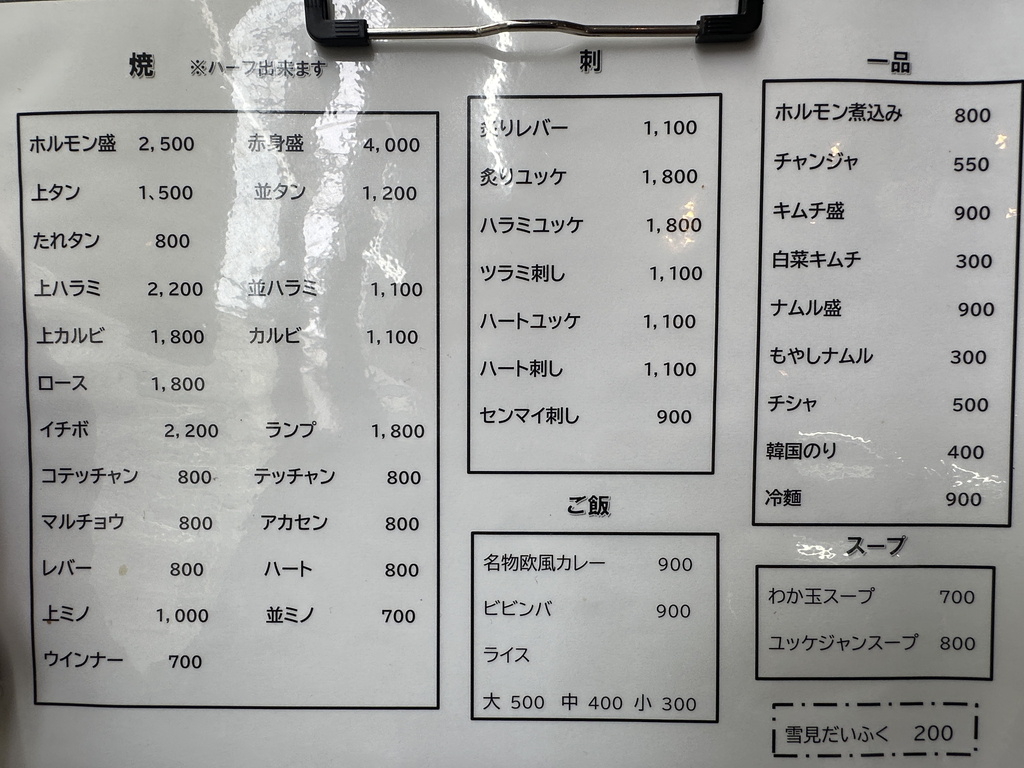 焼 ※ハーフ出来ます
ホルモン盛 2,500 赤身盛 4,000
上タン 1、500 並タン 1,200
たれタン 800
上ハラミ 2,200 並ハラミ 1,100
上カルビ 1,800 カルビ 1,100
ロース 1,800
イチボ 2,200 ランプ 1,800
コテッチャン 800 テッチャン 800
マルチョウ 800 アカセン 800
レバー 800 ハート 800
上ミノ 1,000 並ミノ 700
ウインナー 700
刺
炙りレバー 1,100
炙りユッケ 1,800
ハラミユッケ 1,800
ツラミ刺し 1,100
ハートユッケ 1,100
ハート刺し 1,100
センマイ刺し 900
ご飯
名物欧風カレー 900
ビビンバ 900
ライス
大 500 中 400 小 300
一品
ホルモン煮込み 800
チャンジャ 550
キムチ盛 900
白菜キムチ 300
ナムル盛 900
もやしナムル 300
チシャ 500
韓国のり 400
冷麺 900
スープ
わか玉スープ 700
ユッケジャンスープ 800
雪見だいふく 200